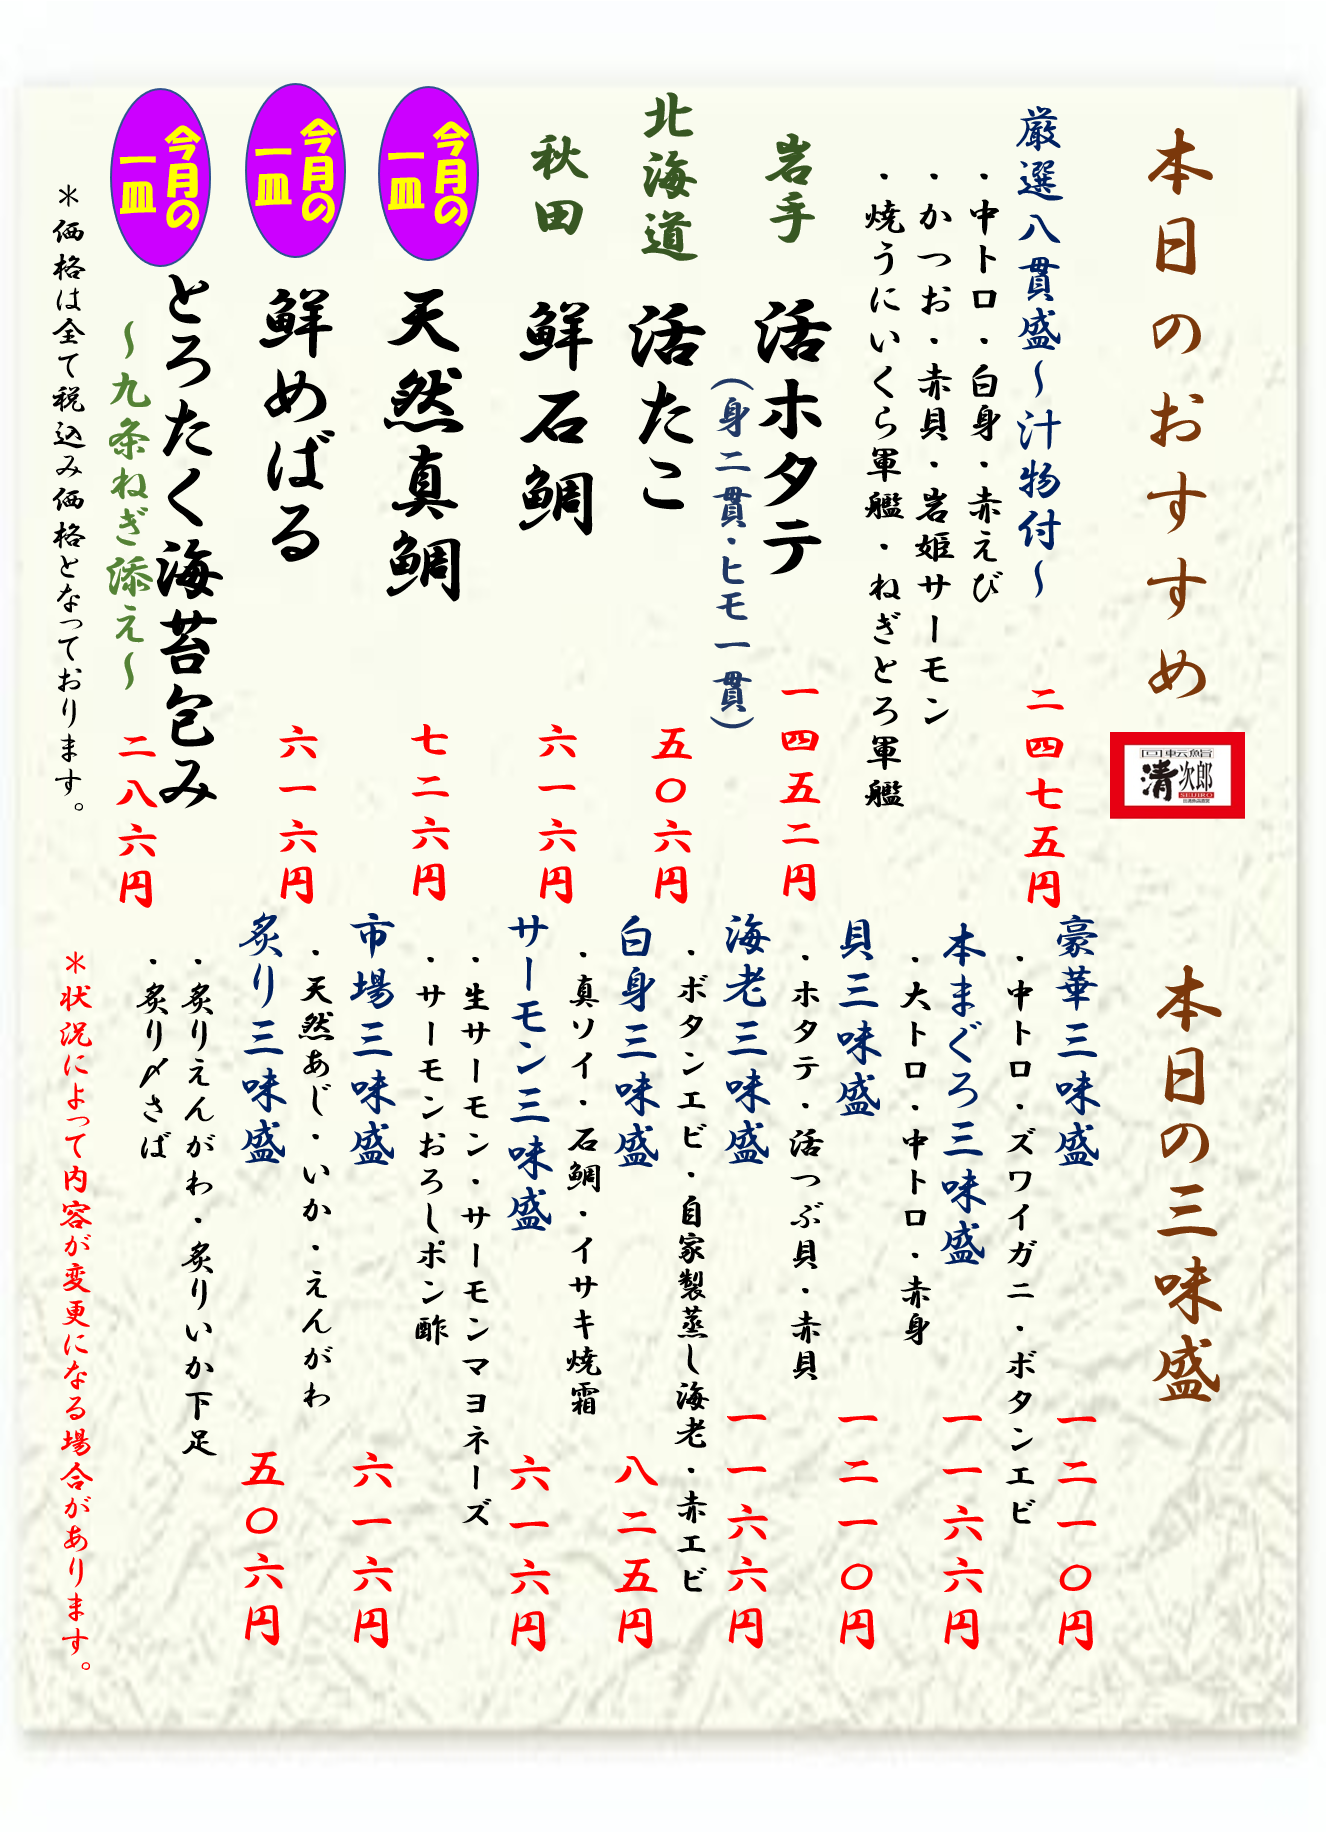 本日のおすすめ
回転鮨
清次郎
SEIJIRO
厳選八貫盛～汁物付～
二四七五円
・中トロ・白身・赤えび
・かつお・赤貝・岩姫サーモン
・焼うにいくら軍艦・ねぎとろ軍艦
岩手 活ホタテ
一四五二円
（身二貫・ヒモ一貫）
北海道 活たこ
五〇六円
秋田 鮮石鯛
六一六円
今月の
一皿
天然真鯛
七二六円
今月の
一皿
鮮めばる
六一六円
今月の
一皿
とろたく海苔包み
～九条ねぎ添え～
二八六円
＊価格は全て税込み価格となっております。
本日の三味盛
豪華三味盛
一二一〇円
・中トロ・ズワイガニ・ボタンエビ
本まぐろ三味盛
一一六六円
・大トロ・中トロ・赤身
貝三味盛
一二一〇円
・ホタテ・活つぶ貝・赤貝
海老三味盛
一一六六円
・ボタンエビ・自家製蒸し海老・赤エビ
白身三味盛
八二五円
・真ソイ・石鯛・イサキ焼霜
サーモン三味盛
六一六円
・生サーモン・サーモンマヨネーズ
・サーモンおろしポン酢
市場三味盛
六一六円
・天然あじ・いか・えんがわ
炙り三味盛
五〇六円
・炙りえんがわ・炙りいか下足
・炙り〆さば
＊状況によって内容が変更になる場合があります。